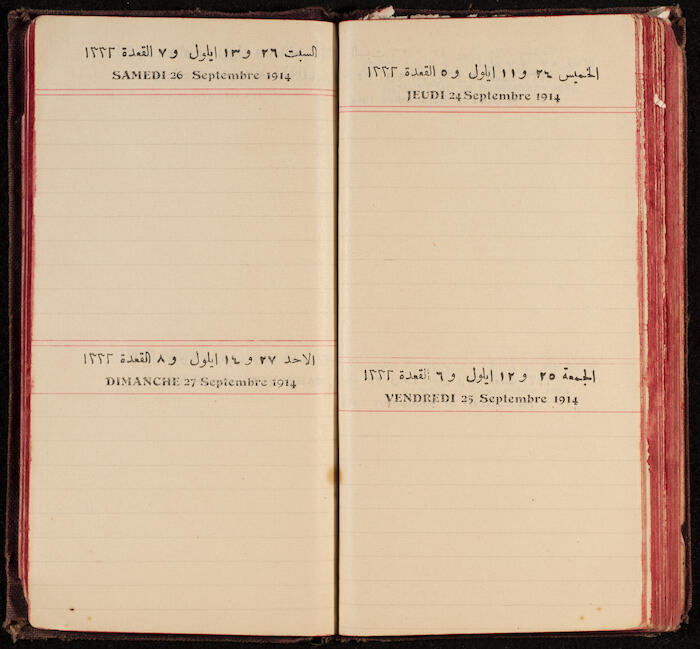 الخميس ٢٤ و ١١ ايلول و ٥ القعدة ١٣٣٢
JEUDI 24 Septembre 1914
الجمعة ٢٥ و ١٢ ايلول و ٦ القعدة ١٣٣٢
VENDREDI 25 Septembre 1914
السبت ٢٦ و ١٣ ايلول و ٧ القعدة ١٣٣٢
SAMEDI 26 Septembre 1914
الاحد ٢٧ و ١٤ ايلول و ٨ القعدة ١٣٣٢
DIMANCHE 27 Septembre 1914